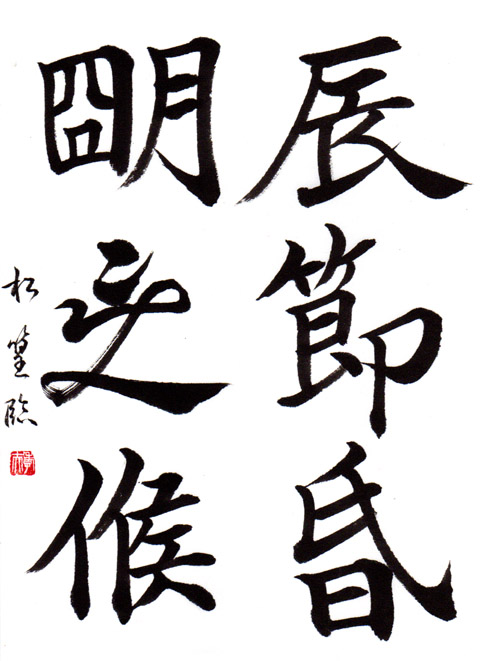 辰節昏
朙之候
松篁臨